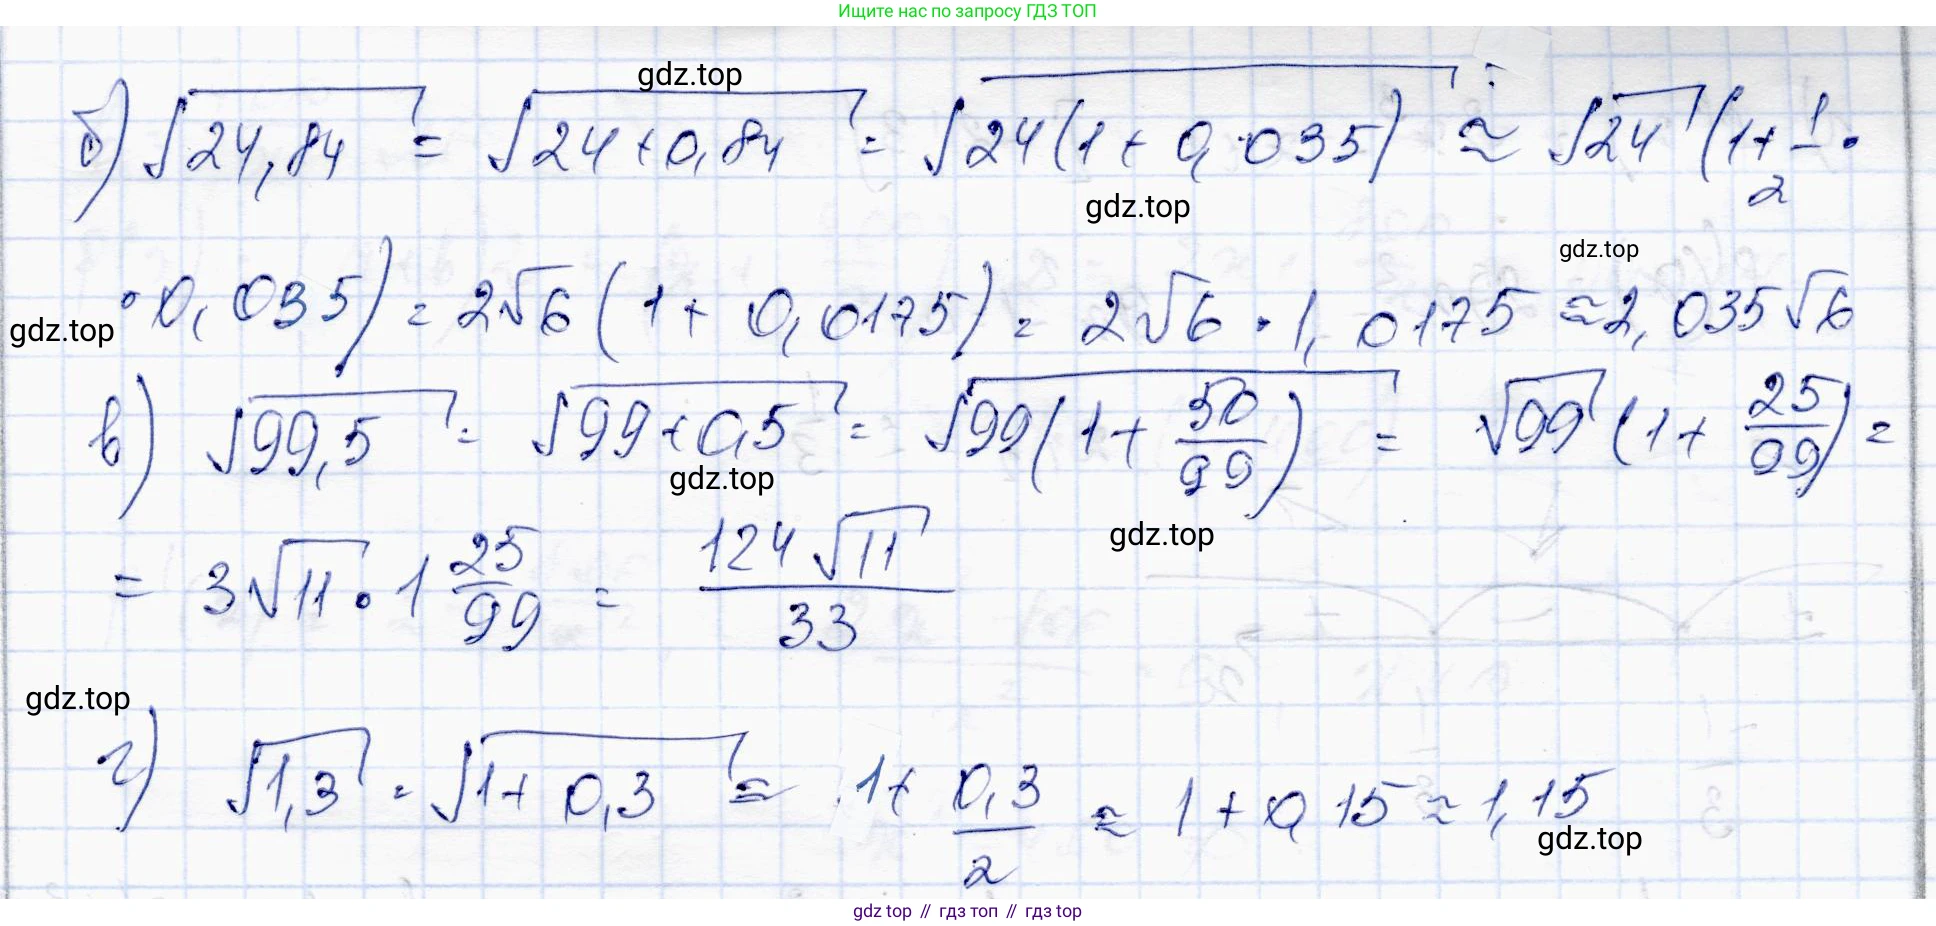 Ищите нас по запросу ГДЗ ТОП
gdz.top
б) √24,84 = √24+0,84 = √24(1+0,035) ≈ √24 (1+ 1/2 ·
gdz.top
gdz.top
· 0,035) = 2√6 (1+0,0175) = 2√6 · 1,0175 ≈ 2,035√6
gdz.top
в) √99,5 = √99+0,5 = √99(1+ 50/99) = √99 (1+ 25/99) =
gdz.top
gdz.top
= 3√11 · 1 25/99 = 124√11/33
gdz.top
г) √1,3 = √1+0,3 ≈ 1+ 0,3/2 ≈ 1+0,15 ≈ 1,15
gdz.top
gdz top // гдз топ // gdz top